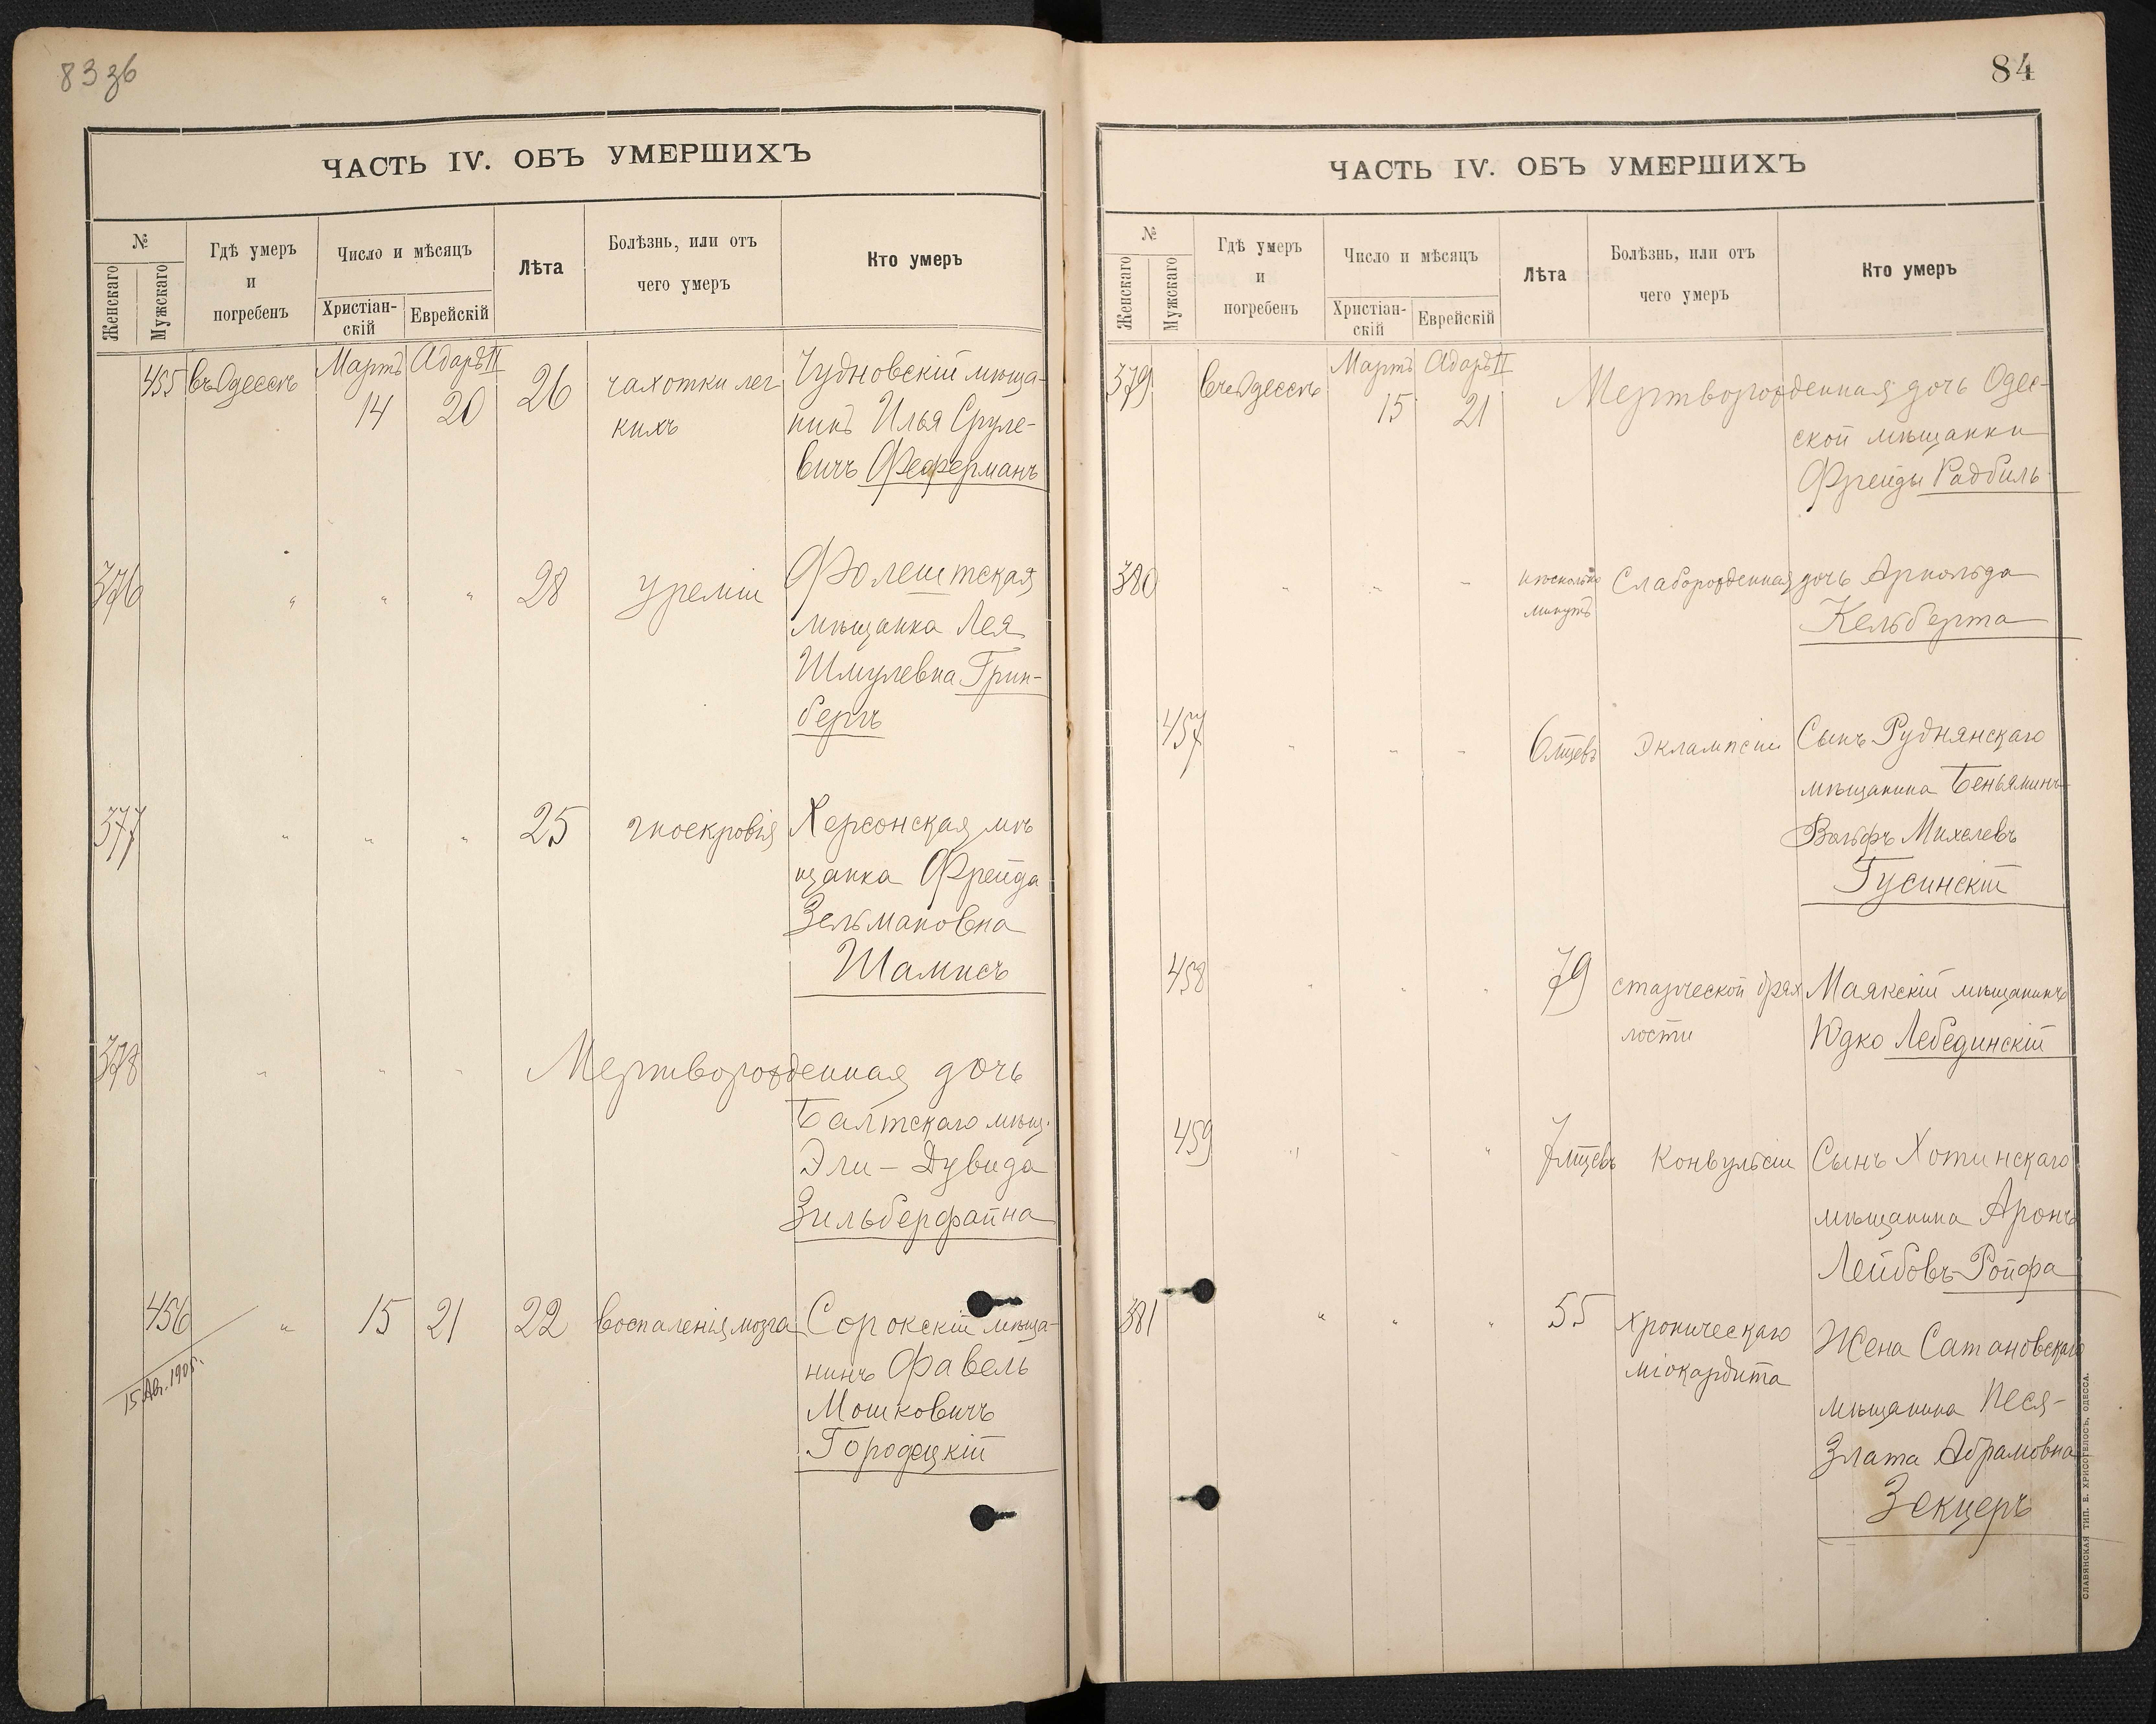 83 зб
ЧАСТЬ IV. ОБЪ УМЕРШИХЪ
№
Женскаго
Мужскаго
Гдѣ умеръ
и
погребенъ
Число и мѣсяцъ
Христіан-
скій
Еврейскій
Лѣта
Болѣзнь, или отъ
чего умеръ
Кто умеръ
455 въ Одессѣ Мартъ 14 Адаръ II 20 26 чахотки лег
кихъ
Чудновскій мѣща-
нинъ Илья Сруле-
вичъ Феферманъ
376 " " " 28 уреміи Фолештская
мѣщанка Лея
Шмулевна Грин-
бергъ
377 " " " 25 гноекровія Херсонская мѣ
щанка Фрейда
Зельмановна
Шамисъ
378 " " " Мертворожденная дочь
Балтскаго мѣщ.
Эли-Дувида
Зильберфайна
456 " 15 21 22 воспаленія мозга Сорокскій мѣща-
нинъ Фавель
Мошковичъ
Городецкій
15 Авг. 1905.
84
ЧАСТЬ IV. ОБЪ УМЕРШИХЪ
№
Женскаго
Мужскаго
Гдѣ умеръ
и
погребенъ
Число и мѣсяцъ
Христіан-
скій
Еврейскій
Лѣта
Болѣзнь, или отъ
чего умеръ
Кто умеръ
379 въ Одессѣ Мартъ 15 Адаръ II 21 Мертворожденная дочь Одес-
ской мѣщанки
Фрейды Радбиль
380 " " " нѣсколько
минутъ
Слаборожденная дочь Арнольда
Кельберта
457 " " " 6 мцевъ Эклампсіи Сынъ Руднянскаго
мѣщанина Беньяминъ-
Вольфъ Михелевъ
Гусинскій
458 " " " 79 старческой дрях
лости
Маякскій мѣщанинъ
Юдко Лебединскій
459 " " " 7 мцевъ Конвульсіи Сынъ Хотинскаго
мѣщанина Аронъ
Лейбовъ-Ройфа
381 " " " 55 Хроническаго
міокардита
Жена Сатановскаго
мѣщанина Песя-
Злата Абрамовна
Зекцеръ
СЛАВЯНСКАЯ ТИП. Е. ХРИСОГЕЛОСЪ, ОДЕССА.